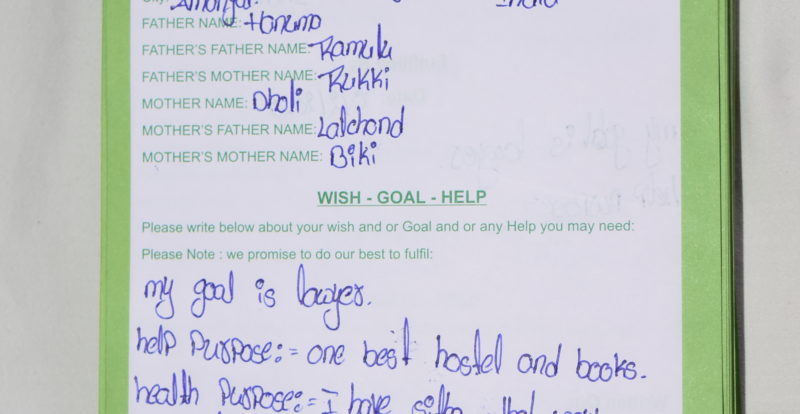 FATHER NAME: Hanumo
FATHER'S FATHER NAME: Ramulu
FATHER'S MOTHER NAME: Rukki
MOTHER NAME: Dholi
MOTHER'S FATHER NAME: Lalchand
MOTHER'S MOTHER NAME: Biki
WISH - GOAL - HELP
Please write below about your wish and or Goal and or any Help you may need:
Please Note : we promise to do our best to fulfil:
my goal is lawyer.
help Purpose:= one best hostel and books.
health Purpose:= I have